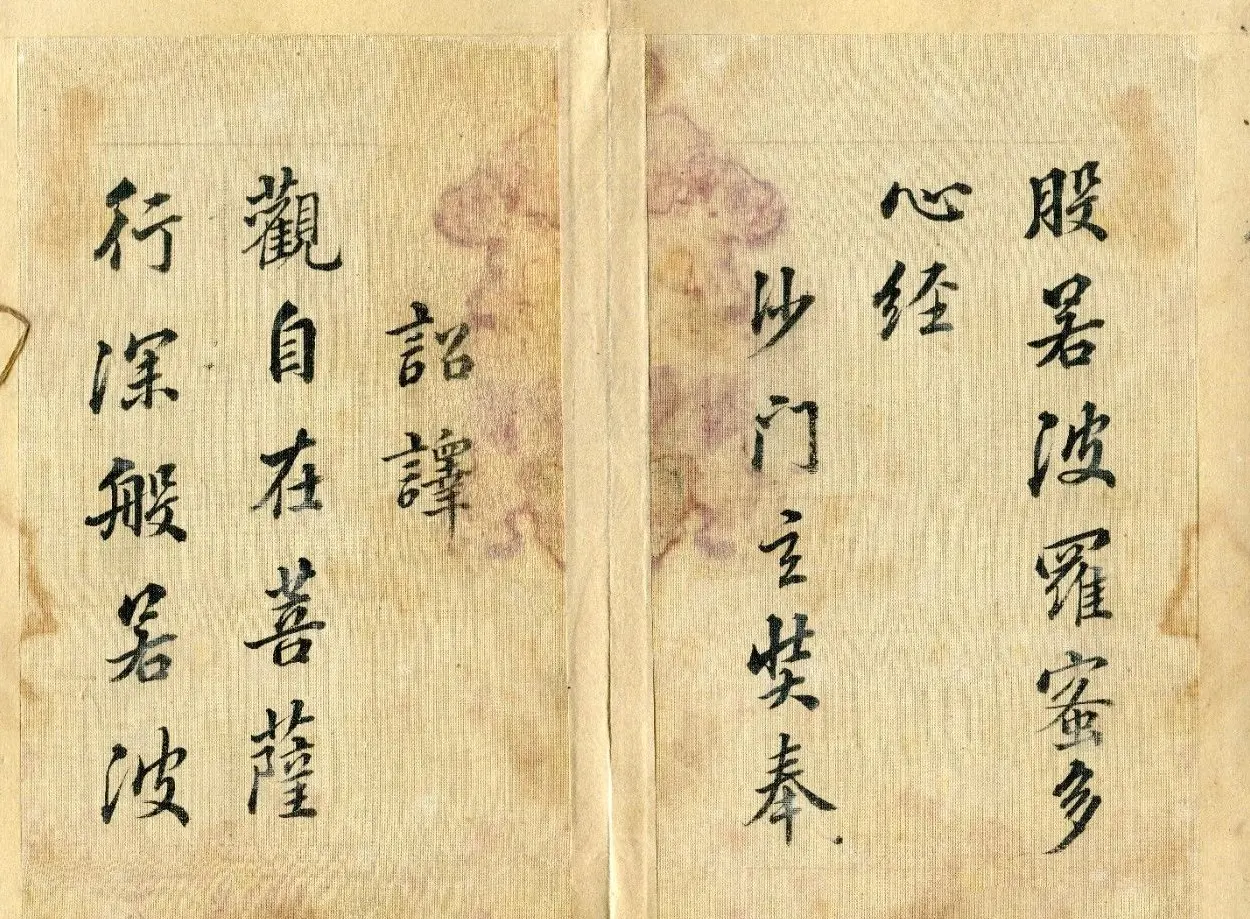 股若波羅蜜多
心经
沙门玄奘奉
詔譯
觀自在菩薩
行深般若波